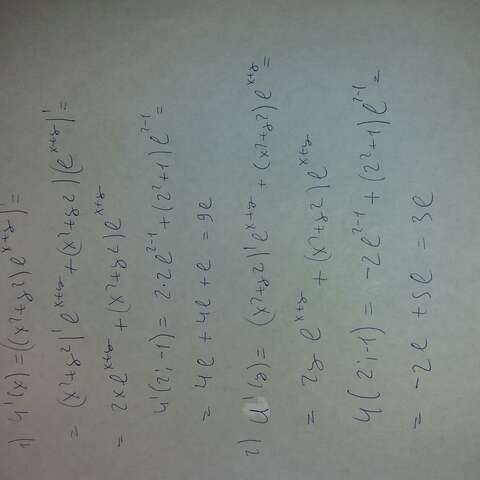 1) u'(x) = ((x²+y²)e^{x+y})' =
= (x²+y²)' e^{x+y} + (x²+y²)(e^{x+y})' =
= 2xe^{x+y} + (x²+y²)e^{x+y}
u'(2;-1) = 2·2e^{2-1} + (2²+1)e^{2-1} =
= 4e + 4e + e = 9e
2) u'(y) = (x²+y²)' e^{x+y} + (x²+y²)e^{x+y} =
= 2y e^{x+y} + (x²+y²)e^{x+y}
u(2;-1) = -2e^{2-1} + (2²+1)e^{2-1} =
= -2e + 5e = 3e